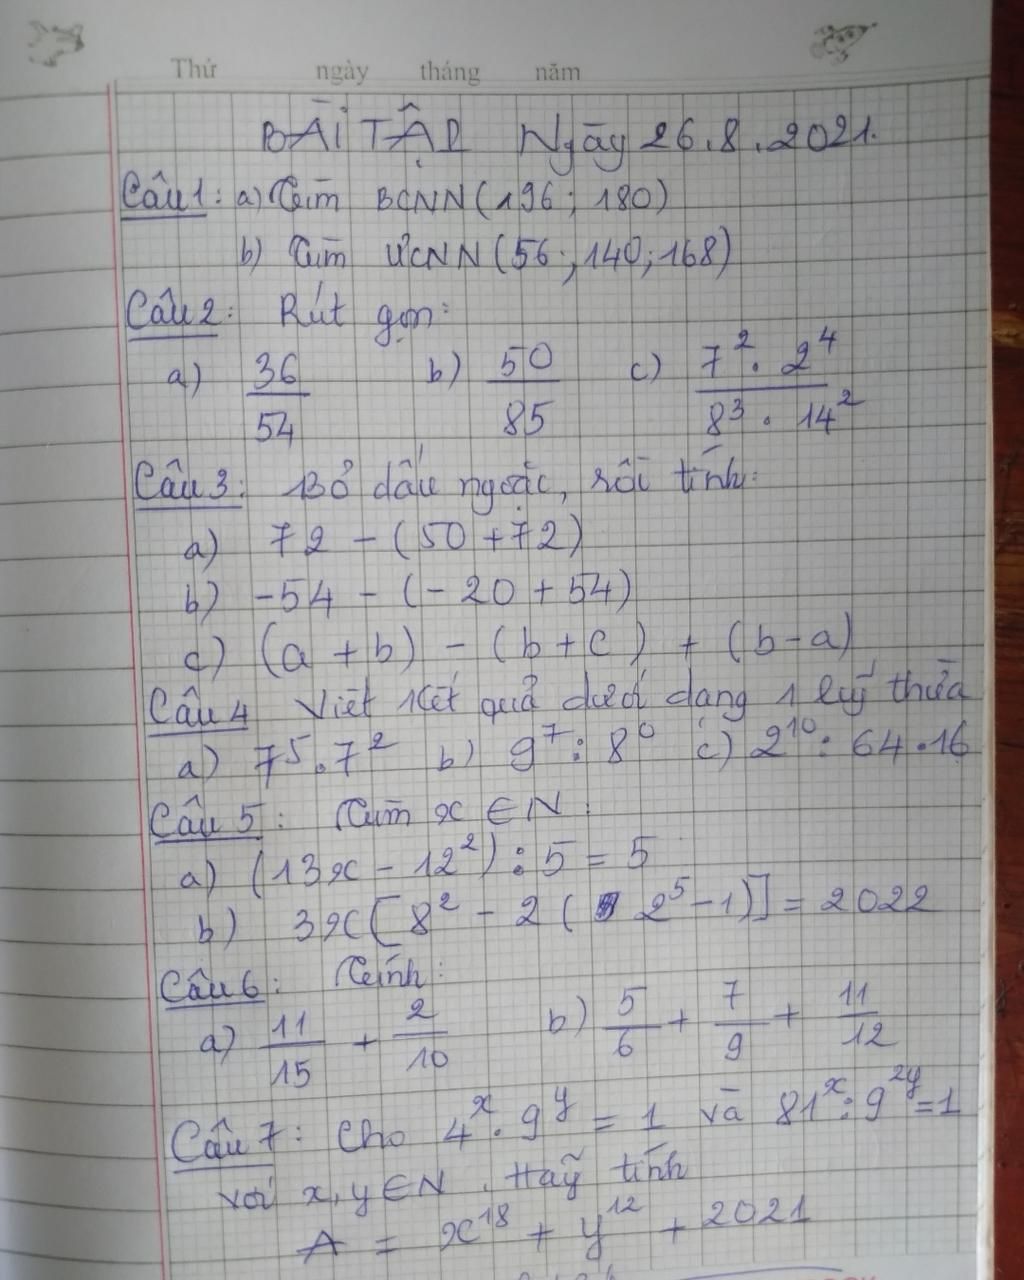 Thứ ngày tháng năm
BÀI TẬP Ngày 26.8.2021.
Câu 1: a) Tìm BCNN(196; 180)
b) Tìm ƯCNN(56; 140; 168)
Câu 2: Rút gọn:
a) 36/54 b) 50/85 c) 7² . 2⁴ / 8³ . 14²
Câu 3: Bỏ dấu ngoặc, rồi tính:
a) 72 - (50 + 72)
b) -54 - (-20 + 54)
c) (a + b) - (b + c) + (b - a)
Câu 4 Viết kết quả dưới dạng 1 luỹ thừa
a) 7⁵.7² b) 9⁷ : 8⁰ c) 2¹⁰ : 64.16
Câu 5: Tìm x ∈ N:
a) (13x - 12²) : 5 = 5
b) 3x[8² - 2(2⁵ - 1)] = 2022
Câu 6: Tính:
a) 11/15 + 2/10 b) 5/6 + 7/9 + 11/12
Câu 7: Cho 4ˣ . 9ʸ = 1 và 81ˣ : 9²ʸ = 1
với x, y ∈ N. Hãy tính
A = x¹⁸ + y¹² + 2021